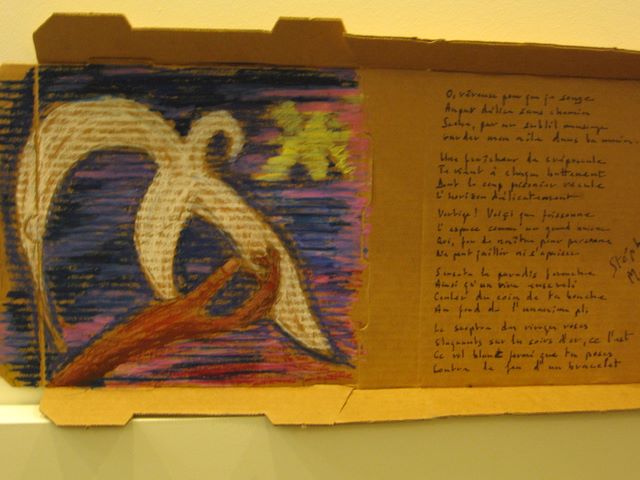 O, rêveuse pour que je songe
Au pur délice sans chemin
Sache, par un subtil mensonge
Garder mon aile dans ta main.
Une fraîcheur de crépuscule
Te vient à chaque battement
Dont le coup prisonnier recule
L'horizon délicatement
Vertige! Voici que frissonne
L'espace comme un grand baiser
Qui, fou de naître pour personne
Ne peut jaillir ni s'apaiser
Sens-tu le paradis farouche
Ainsi qu'un rire enseveli
Couler du coin de ta bouche
Au fond de l'unanime pli
Le sceptre des rivages roses
Stagnants sur les soirs d'or, ce l'est
Ce vol blanc fermé que tu poses
Contre le feu d'un bracelet
Stéph
M